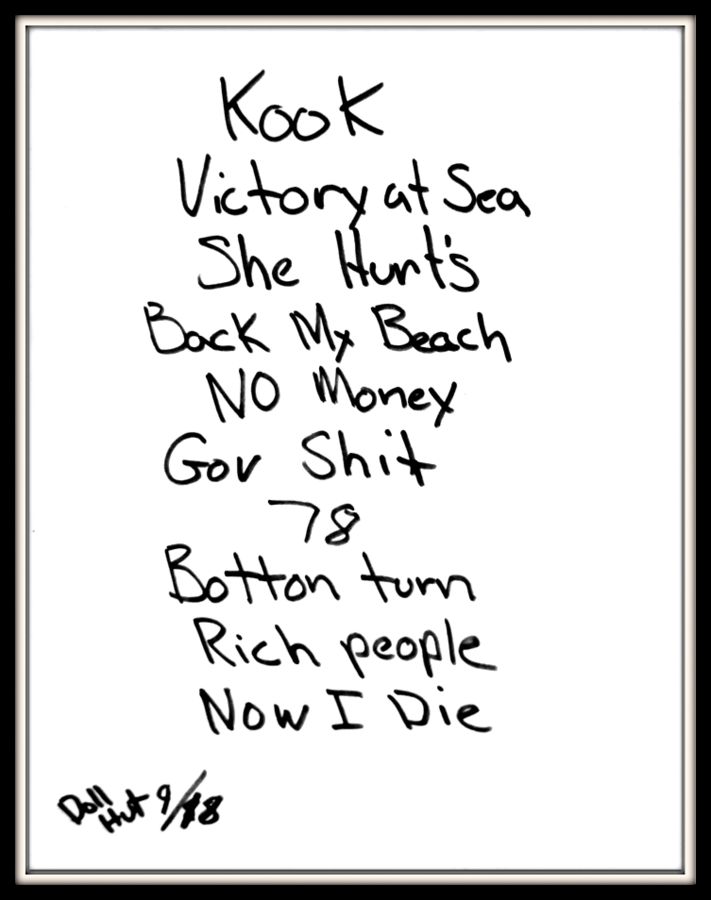 Kook
Victory at Sea
She Hurt's
Back My Beach
NO Money
Gov Shit
78
Botton turn
Rich people
Now I Die
Doll
Hut 9/18